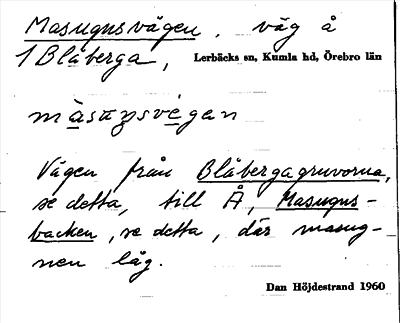 Masugnsvägen, väg å
1 Blåberga, Lerbäcks sn, Kumla hd, Örebro län
màsuŋsvegan
Vägen från Blåbergagruvorna,
se detta, till Å, Masugns-
backen, se detta, där masug-
nen låg.
Dan Höjdestrand 1960